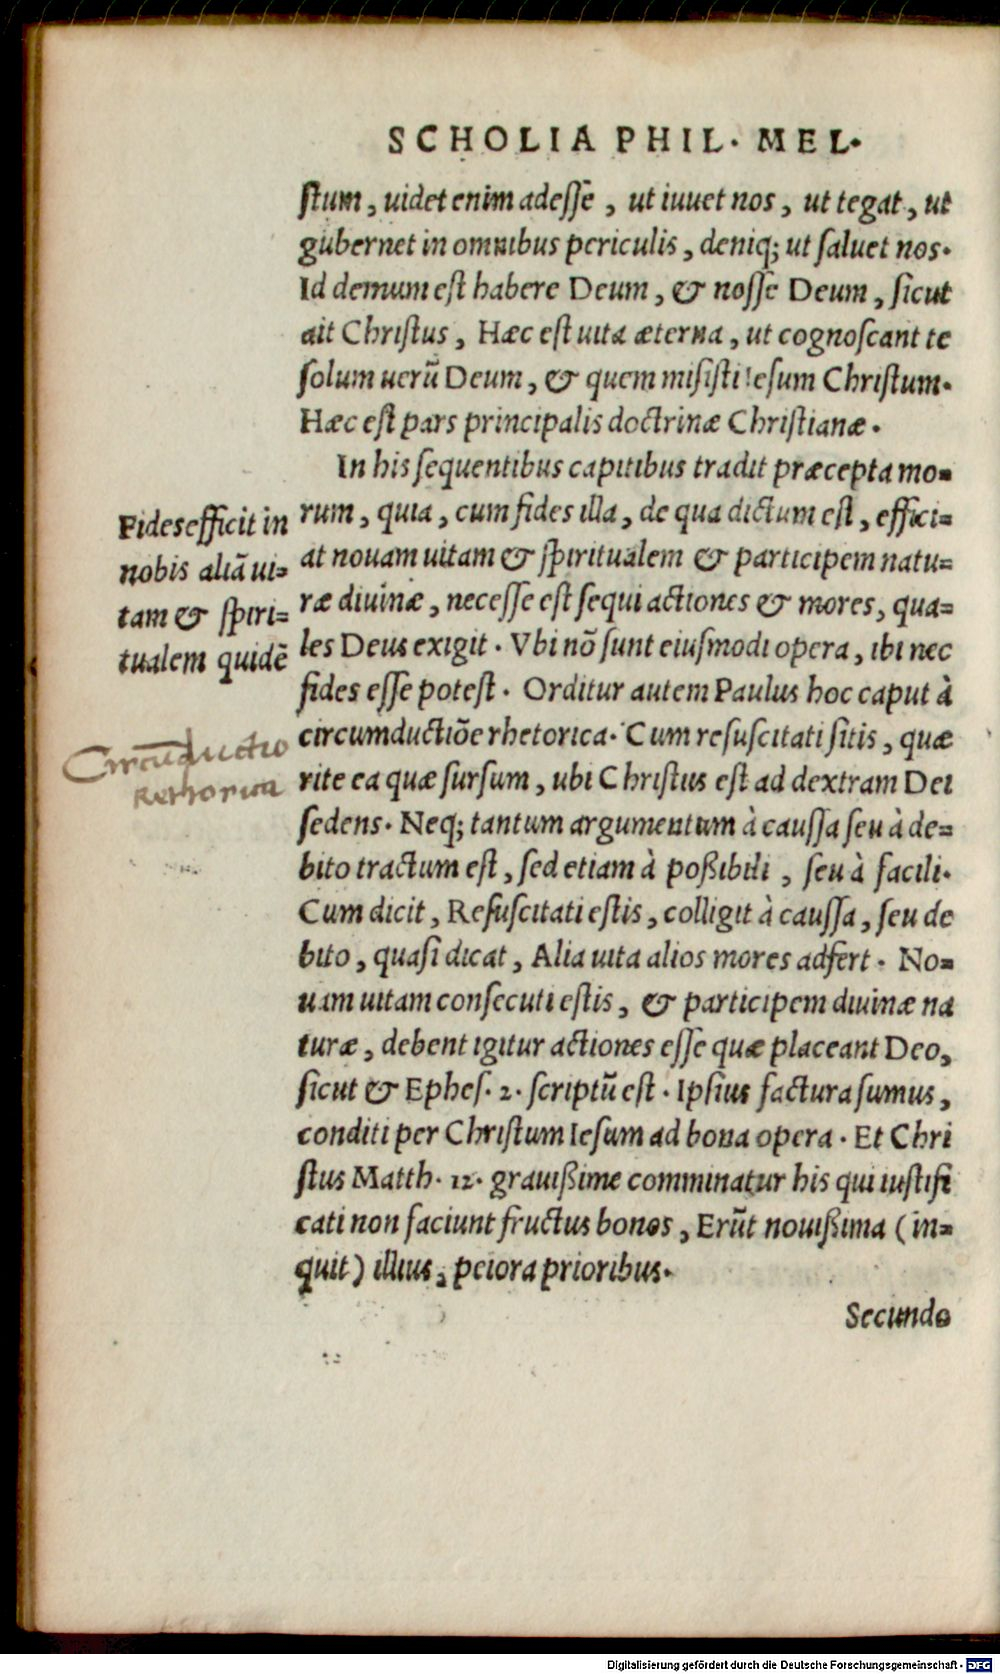 SCHOLIA PHIL. MEL.
stum, uidet enim adesse, ut iuuet nos, ut tegat, ut
gubernet in omnibus periculis, deniq; ut saluet nos.
Id demum est habere Deum, & nosse Deum, sicut
ait Christus, Hæc est uita æterna, ut cognoscant te
solum uerũ Deum, & quem misisti Iesum Christum.
Hæc est pars principalis doctrinæ Christianæ.
In his sequentibus capitibus tradit præcepta mo=
rum, quia, cum fides illa, de qua dictum est, effici=
at nouam uitam & spiritualem & participem natu=
ræ diuinæ, necesse est sequi actiones & mores, qua=
les Deus exigit. Vbi nõ sunt eiusmodi opera, ibi nec
fides esse potest. Orditur autem Paulus hoc caput à
circumductiõe rhetorica. Cum resuscitati sitis, quæ
rite ea quæ sursum, ubi Christus est ad dextram Dei
sedens. Neq; tantum argumentum à caussa seu à de=
bito tractum est, sed etiam à poßibili, seu à facili.
Cum dicit, Resuscitati estis, colligit à caussa, seu de
bito, quasi dicat, Alia uita alios mores adfert. No=
uam uitam consecuti estis, & participem diuinæ na
turæ, debent igitur actiones esse quæ placeant Deo,
sicut & Ephes. 2. scriptũ est. Ipsius factura sumus,
conditi per Christum Iesum ad bona opera. Et Chri
stus Matth. 12. grauißime comminatur his qui iustifi
cati non faciunt fructus bonos, Erũt nouißima (in=
quit) illius, peiora prioribus.
Secundo
Fides efficit in
nobis aliã ui=
tam & spiri=
tualem quidẽ
Circũductio
Rethorica
Digitalisierung gefördert durch die Deutsche Forschungsgemeinschaft - DFG